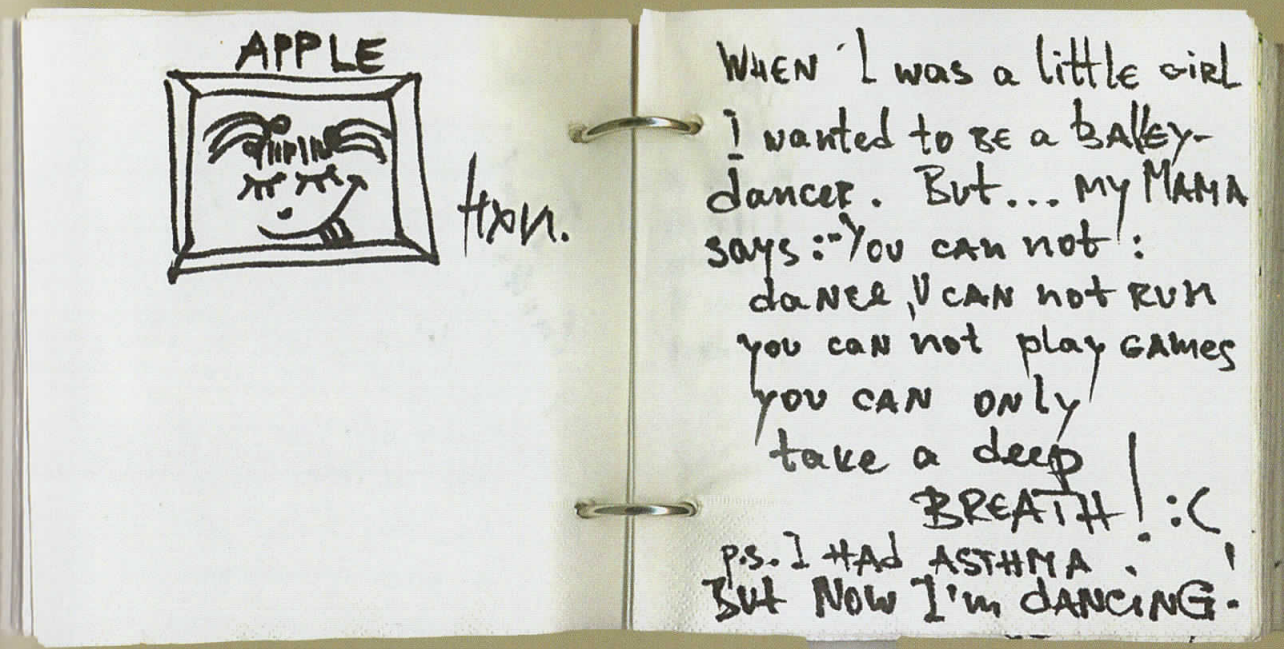 APPLE
WHEN I was a little GIRL
I wanted to BE a BALLEY-
dancer. But... my MAMA
says:-You CAN not!:
daNce, U CAN not RUN
you caN not play GAMes
you CAN ONLy
take a deep
BREATH! :(
p.s. I HAd ASTHMA.
But NOW I'm dANCiNG!